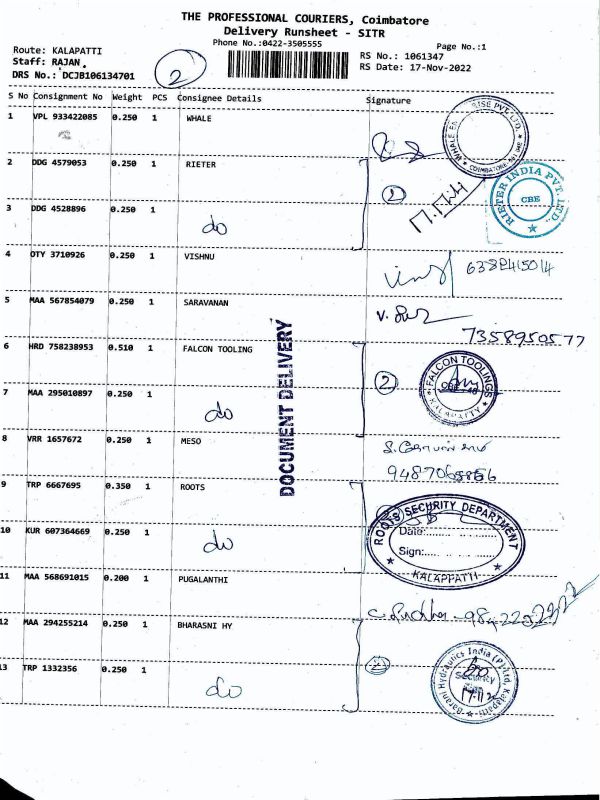 THE PROFESSIONAL COURIERS, Coimbatore
Delivery Runsheet - SITR
Phone No.:0422-3505555
Page No.:1
Route: KALAPATTI
Staff: RAJAN
DRS No.: DCJB106134701
2
RS No.: 1061347
RS Date: 17-Nov-2022
S No Consignment No Weight PCS Consignee Details Signature
1 VPL 933422085 0.250 1 WHALE
2 DDG 4579053 0.250 1 RIETER
2
RIETER INDIA PVT. LTD.
CBE
3 DDG 4528896 0.250 1 do
4 OTY 3710926 0.250 1 VISHNU
6382415014
5 MAA 567854079 0.250 1 SARAVANAN
7358950577
6 HRD 758238953 0.510 1 FALCON TOOLING
2
FALCON TOOLINGS
KALAPATTY
7 MAA 295010897 0.250 1 do
DOCUMENT DELIVERY
8 VRR 1657672 0.250 1 MESO
9 TRP 6667695 0.350 1 ROOTS
ROOTS SECURITY DEPARTMENT
Date:
Sign:
KALAPPATTI
10 KUR 607364669 0.250 1 do
11 MAA 568691015 0.200 1 PUGALANTHI
12 MAA 294255214 0.250 1 BHARASNI HY
2
Hydraulics India (P) Ltd, Kalapatti
Security
13 TRP 1332356 0.250 1 do